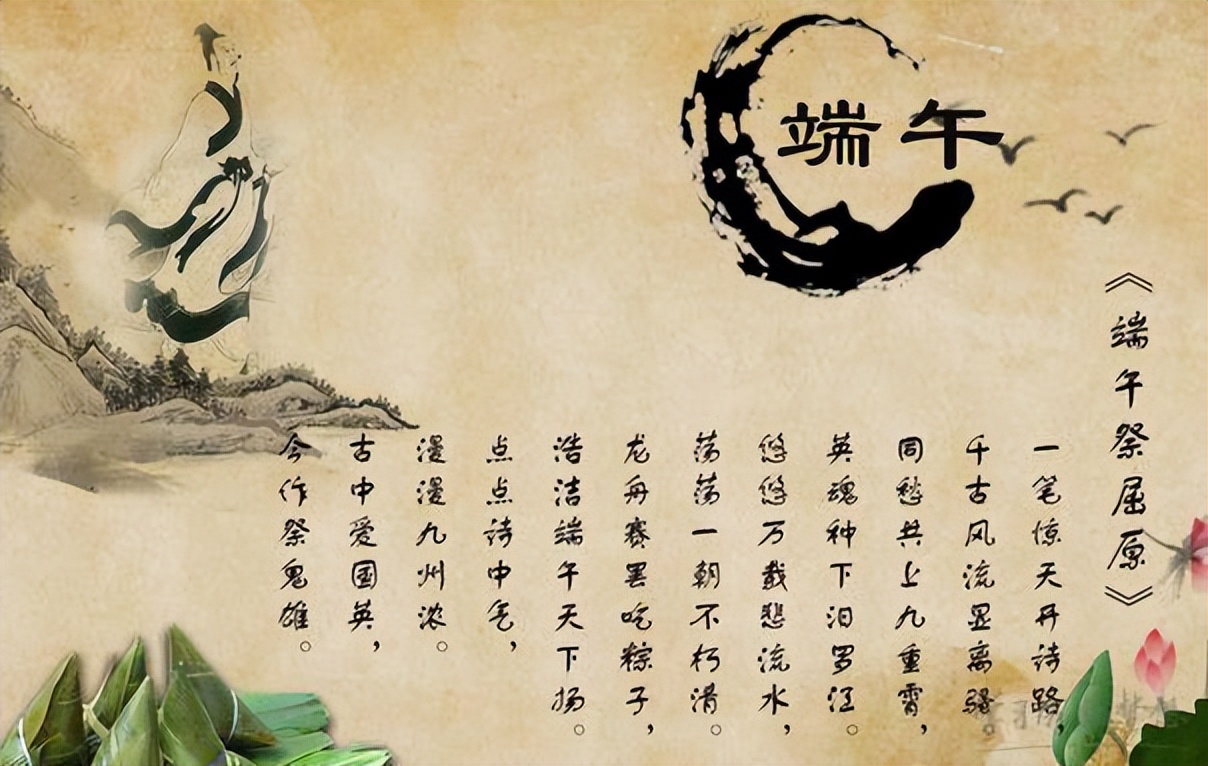 端午
《端午祭屈原》
一笔惊天开诗路
千古风流显离骚。
同愁共上九重霄，
英魂种下汨罗江。
悠悠万载悲流水，
荡荡一朝不朽清。
龙舟赛罢吃粽子，
浩洁端午天下扬。
点点诗中气，
漫漫九州浓。
古中爱国英，
今作祭鬼雄。